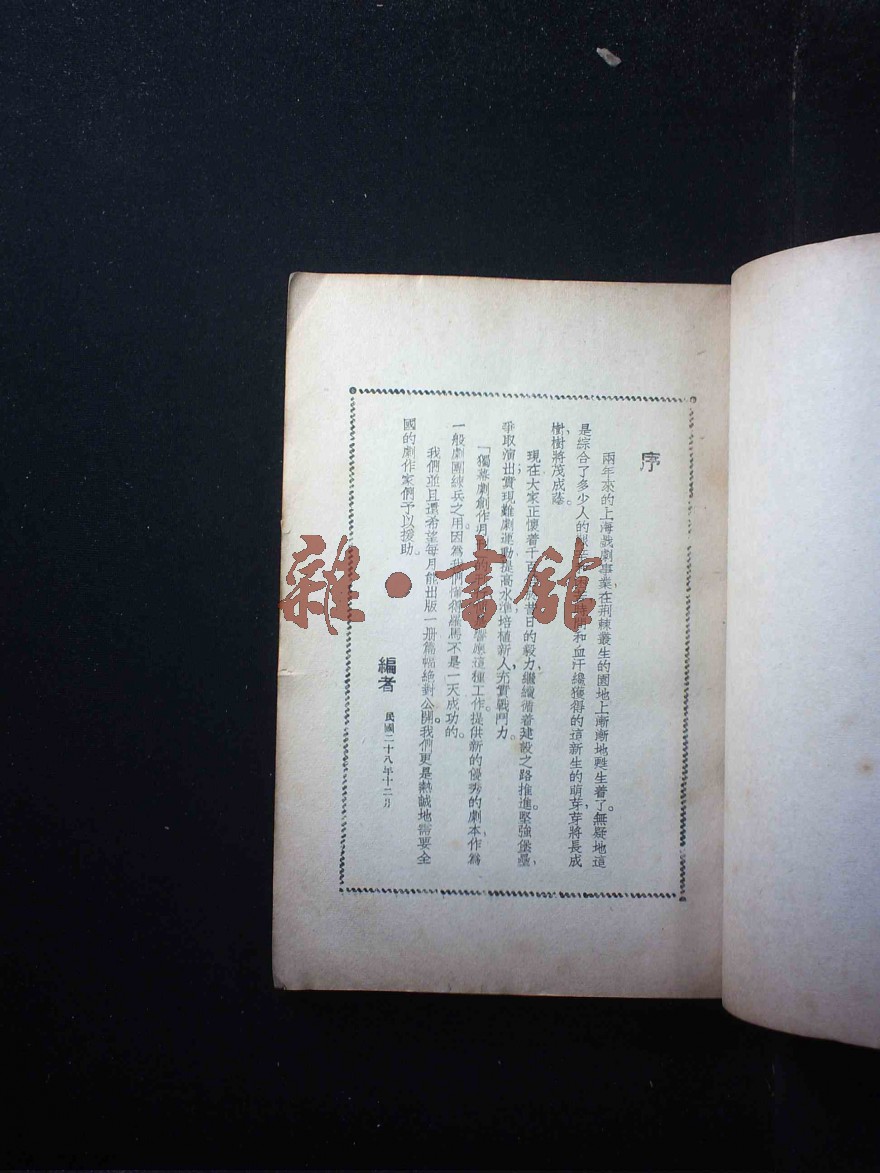 序
兩年來的上海戲劇事業，在荆棘叢生的園地上漸漸地甦生着了。無疑地這
是綜合了多少人的 時間和血汗纔獲得的這新生的萌芽，芽將長成
樹，樹將茂成蔭。
現在大家正懷着千百 昔日的毅力，繼續循着建設之路推進。堅強堡壘，
爭取演出，實現難劇運動，提高水準，培植新人，充實戰鬥力。
「獨幕劇創作月 的 應這種工作。提供新的優秀的劇本，作爲
一般劇團練兵之用。因爲我們懂得羅馬不是一天成功的。
我們並且還希望每月能出版一册，篇幅絕對公開。我們更是熱誠地需要全
國的劇作家們予以援助。
編者 民國二十八年十二月
雜·書館